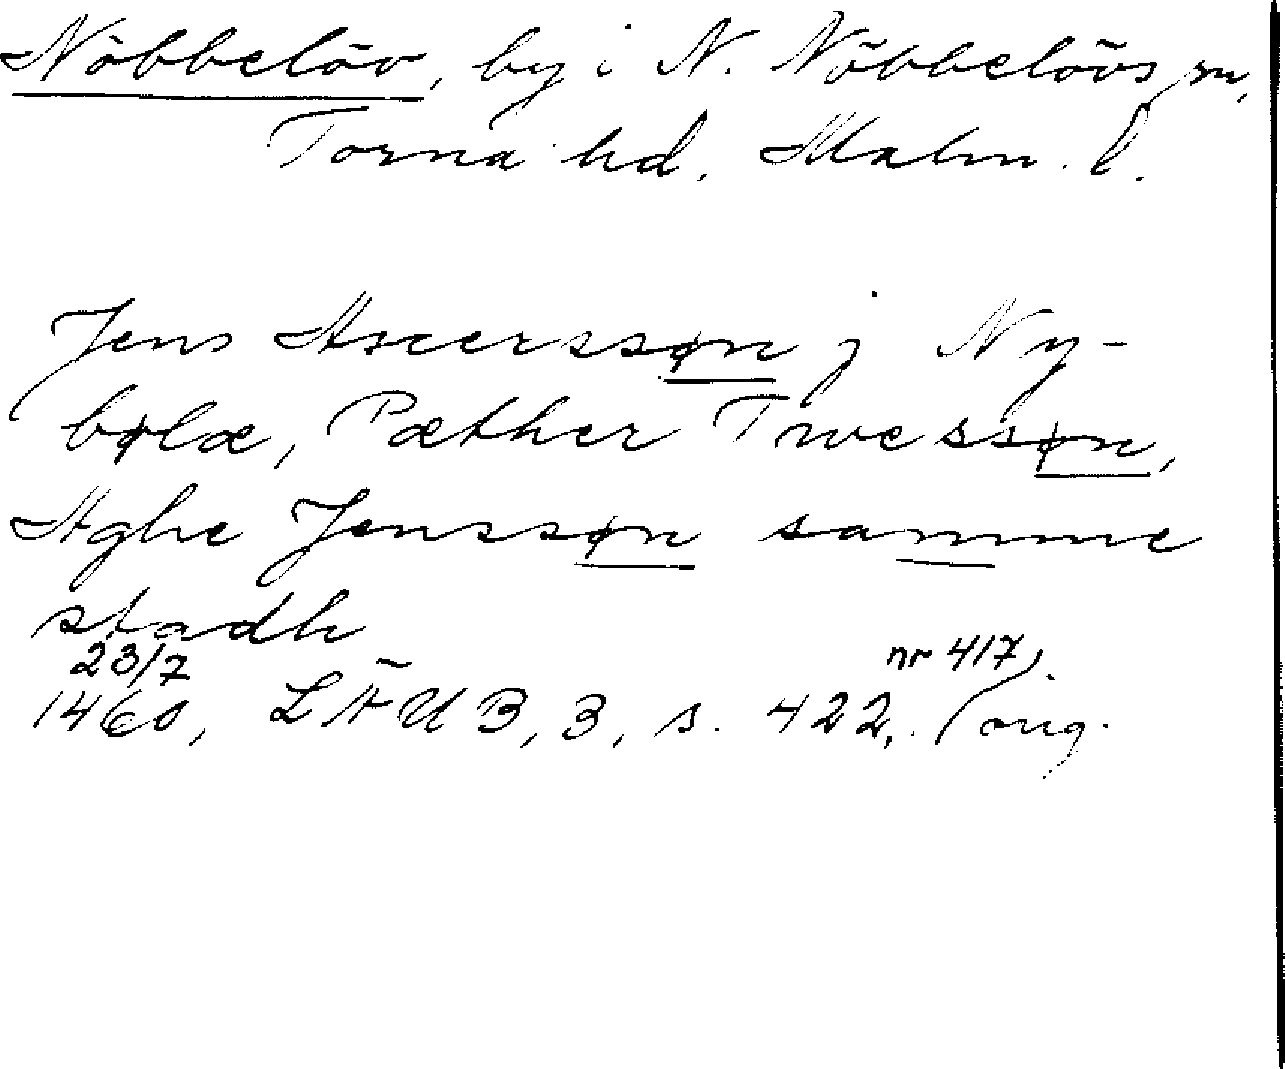 Nöbbelöv, by i N. Nöbbelövs sn,
Torna hd. Malm. l.
Jens Ascerssøn j Ny-
bølæ, Pæther Twessøn,
Aghe Jenssøn samme
stadh
23/7 nr 417,
1460, LÄUB, 3, s. 422, (orig.